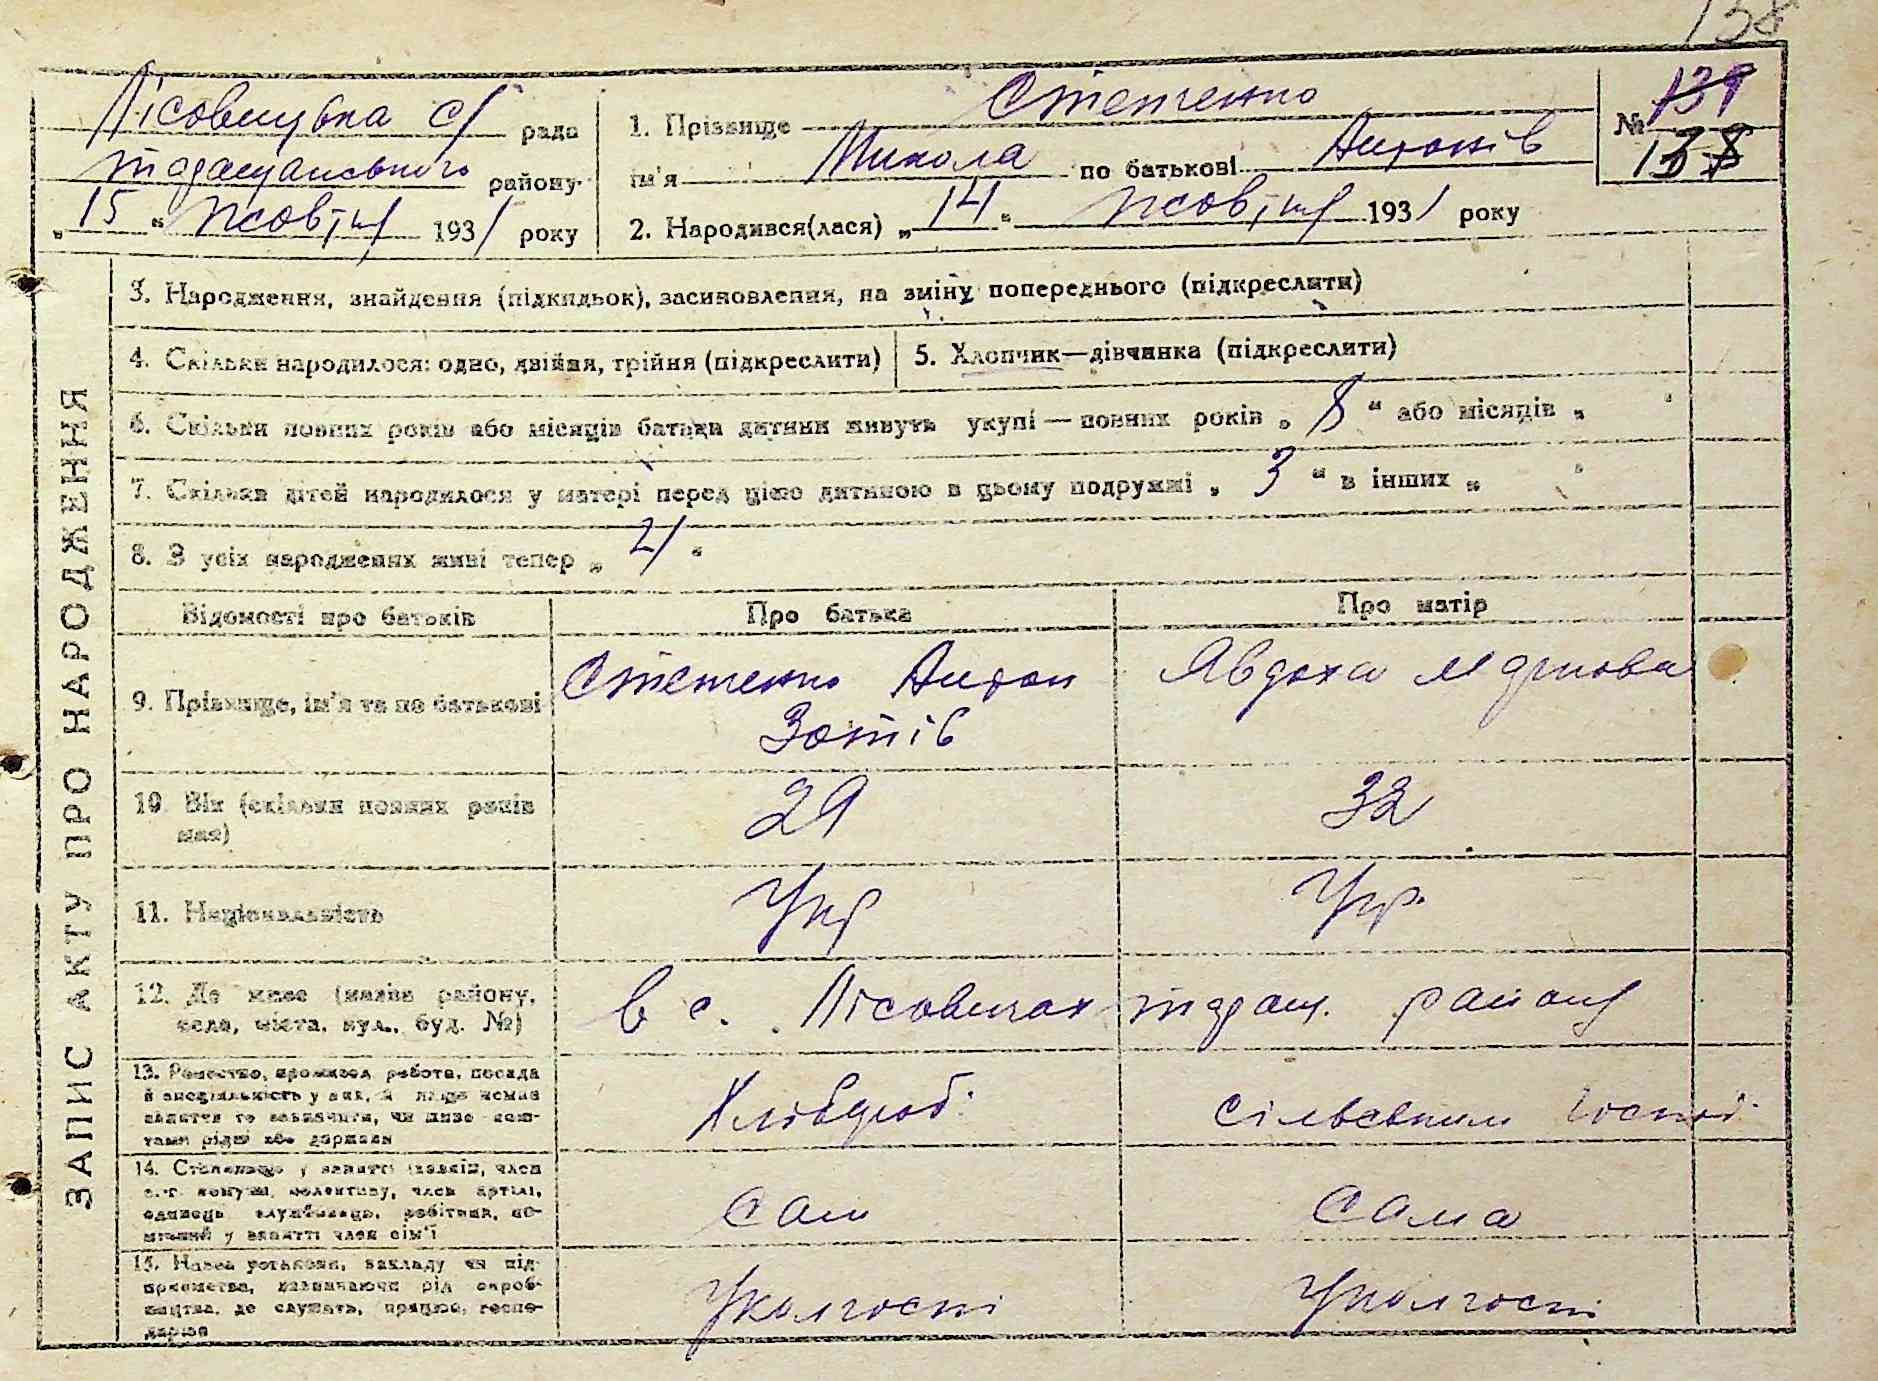 138
Лісовицька с/ рада
таращанського району
„ 15 “ жовтня 1931 року
1. Прізвище Стеценко
ім'я Микола по батькові Антонів
2. Народився(лася) „ 14 “ жовтня 1931 року
№ 139
138
ЗАПИС АКТУ ПРО НАРОДЖЕННЯ
3. Народження, знайдення (підкидьок), засиновлення, на зміну попереднього (підкреслити)
4. Скільки народилося: одно, двійня, трійня (підкреслити)
5. Хлопчик—дівчинка (підкреслити)
6. Скільки повних років або місяців батьки дитини живуть укупі — повних років „ 8 “ або місяців „ “
7. Скільки дітей народилося у матері перед цією дитиною в цьому подружжі „ 3 “ в інших „ “
8. З усіх народжених живі тепер „ “
Відомості про батьків
Про батька
Про матір
9. Прізвище, ім'я та по батькові
Стеценко Антон
Зотів
Явдоха
10. Вік (скільки повних років
має)
29
32
11. Національність
Укр
Укр.
12. Де живе (назва району,
села, міста, вул., буд. №)
в с. Лісовичах таращ. району
13. Ремество, промисел, робота, посада
й спеціяльність у них, а якщо немає
заняття то зазначити, чи живе кош-
тами рідні або держави
Хлібороб.
14. Становище у занятті (хазяїн, член
с.-г. комуни, колективу, член артілі,
одинець службовець, робітник, по-
мічний у занятті член сім'ї
сам
сама
15. Назва установи, закладу чи під-
приємства, зазначаючи рід вироб-
ництва, де служить, працює, госпо-
дарює
У колгоспі
У колгоспі